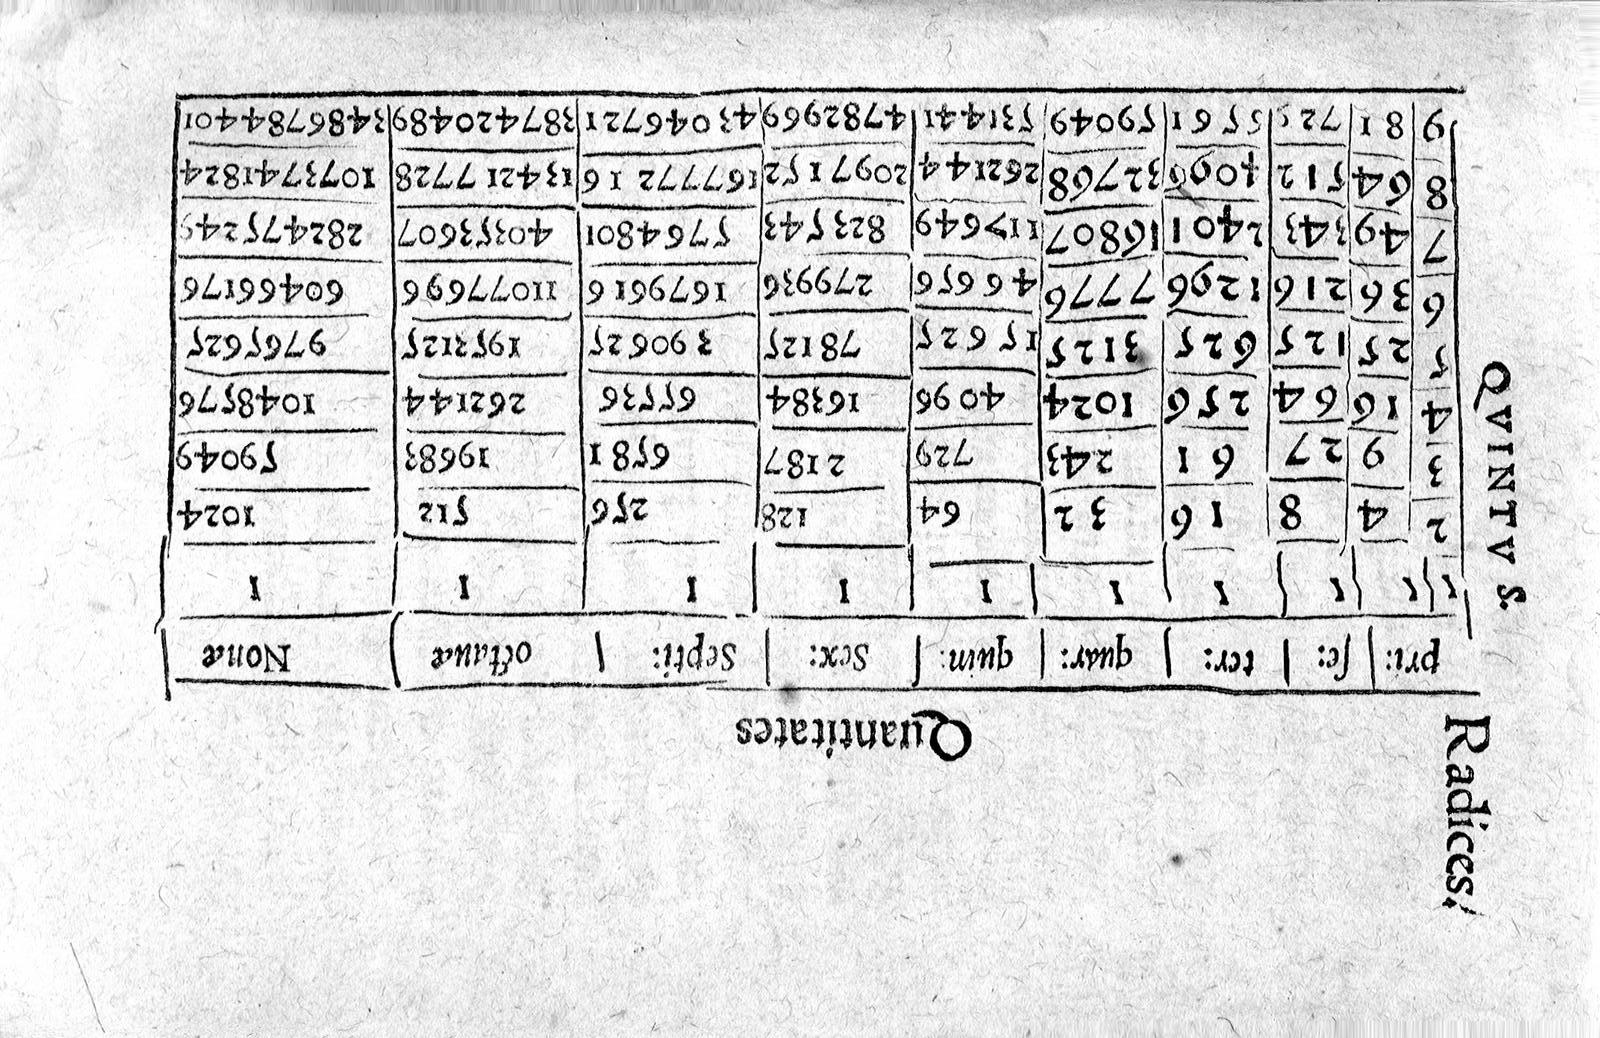 Radices.
Quantitates
pri: ſe: ter: quar: quin: Sex: Septi: octauæ Nonæ
1 1 1 1 1 1 1 1 1 1
QVINTVS.
2 4 8 16 32 64 128 256 512 1024
3 9 27 61 243 729 2187 6581 19683 59049
4 16 64 256 1024 4096 16384 65536 262144 1048576
5 25 125 625 3125 15625 78125 390625 1953125 9765625
6 36 216 1296 7776 46656 279936 1679616 11077696 60466176
7 49 343 2401 16807 117649 823543 5764801 40353607 282475249
8 64 512 4096 32768 262144 2097152 16777216 134217728 1073741824
9 81 729 5561 59049 531441 4782969 43046721 387420489 3486784401